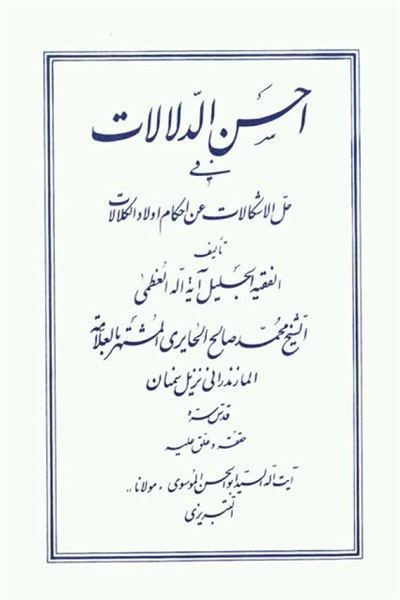 احسن الدّلالات
في
حلّ الاشكالات عن احكام اولاد الكلالات
تأليف
الفقيه الجليل آية الله العظمى
الشيخ محمّد صالح الحايرى المشتهر بالعلامة
المازندرانى نزيل سمنان
قدّس سرّه
حققه و علق عليه
آيت اله السيّد ابوالحسن الموسوى « مولانا »
التبريزى